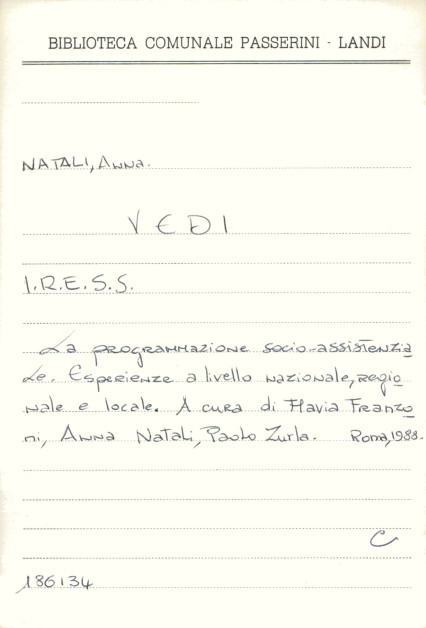 BIBLIOTECA COMUNALE PASSERINI - LANDI
NATALI, Anna.
VEDI
I.R.E.S.S.
La programmazione socio-assistenzia
le. Esperienze a livello nazionale, regio
nale e locale. A cura di Flavia Franzo
ni, Anna Natali, Paolo Zurla. Roma, 1988.
C
186134